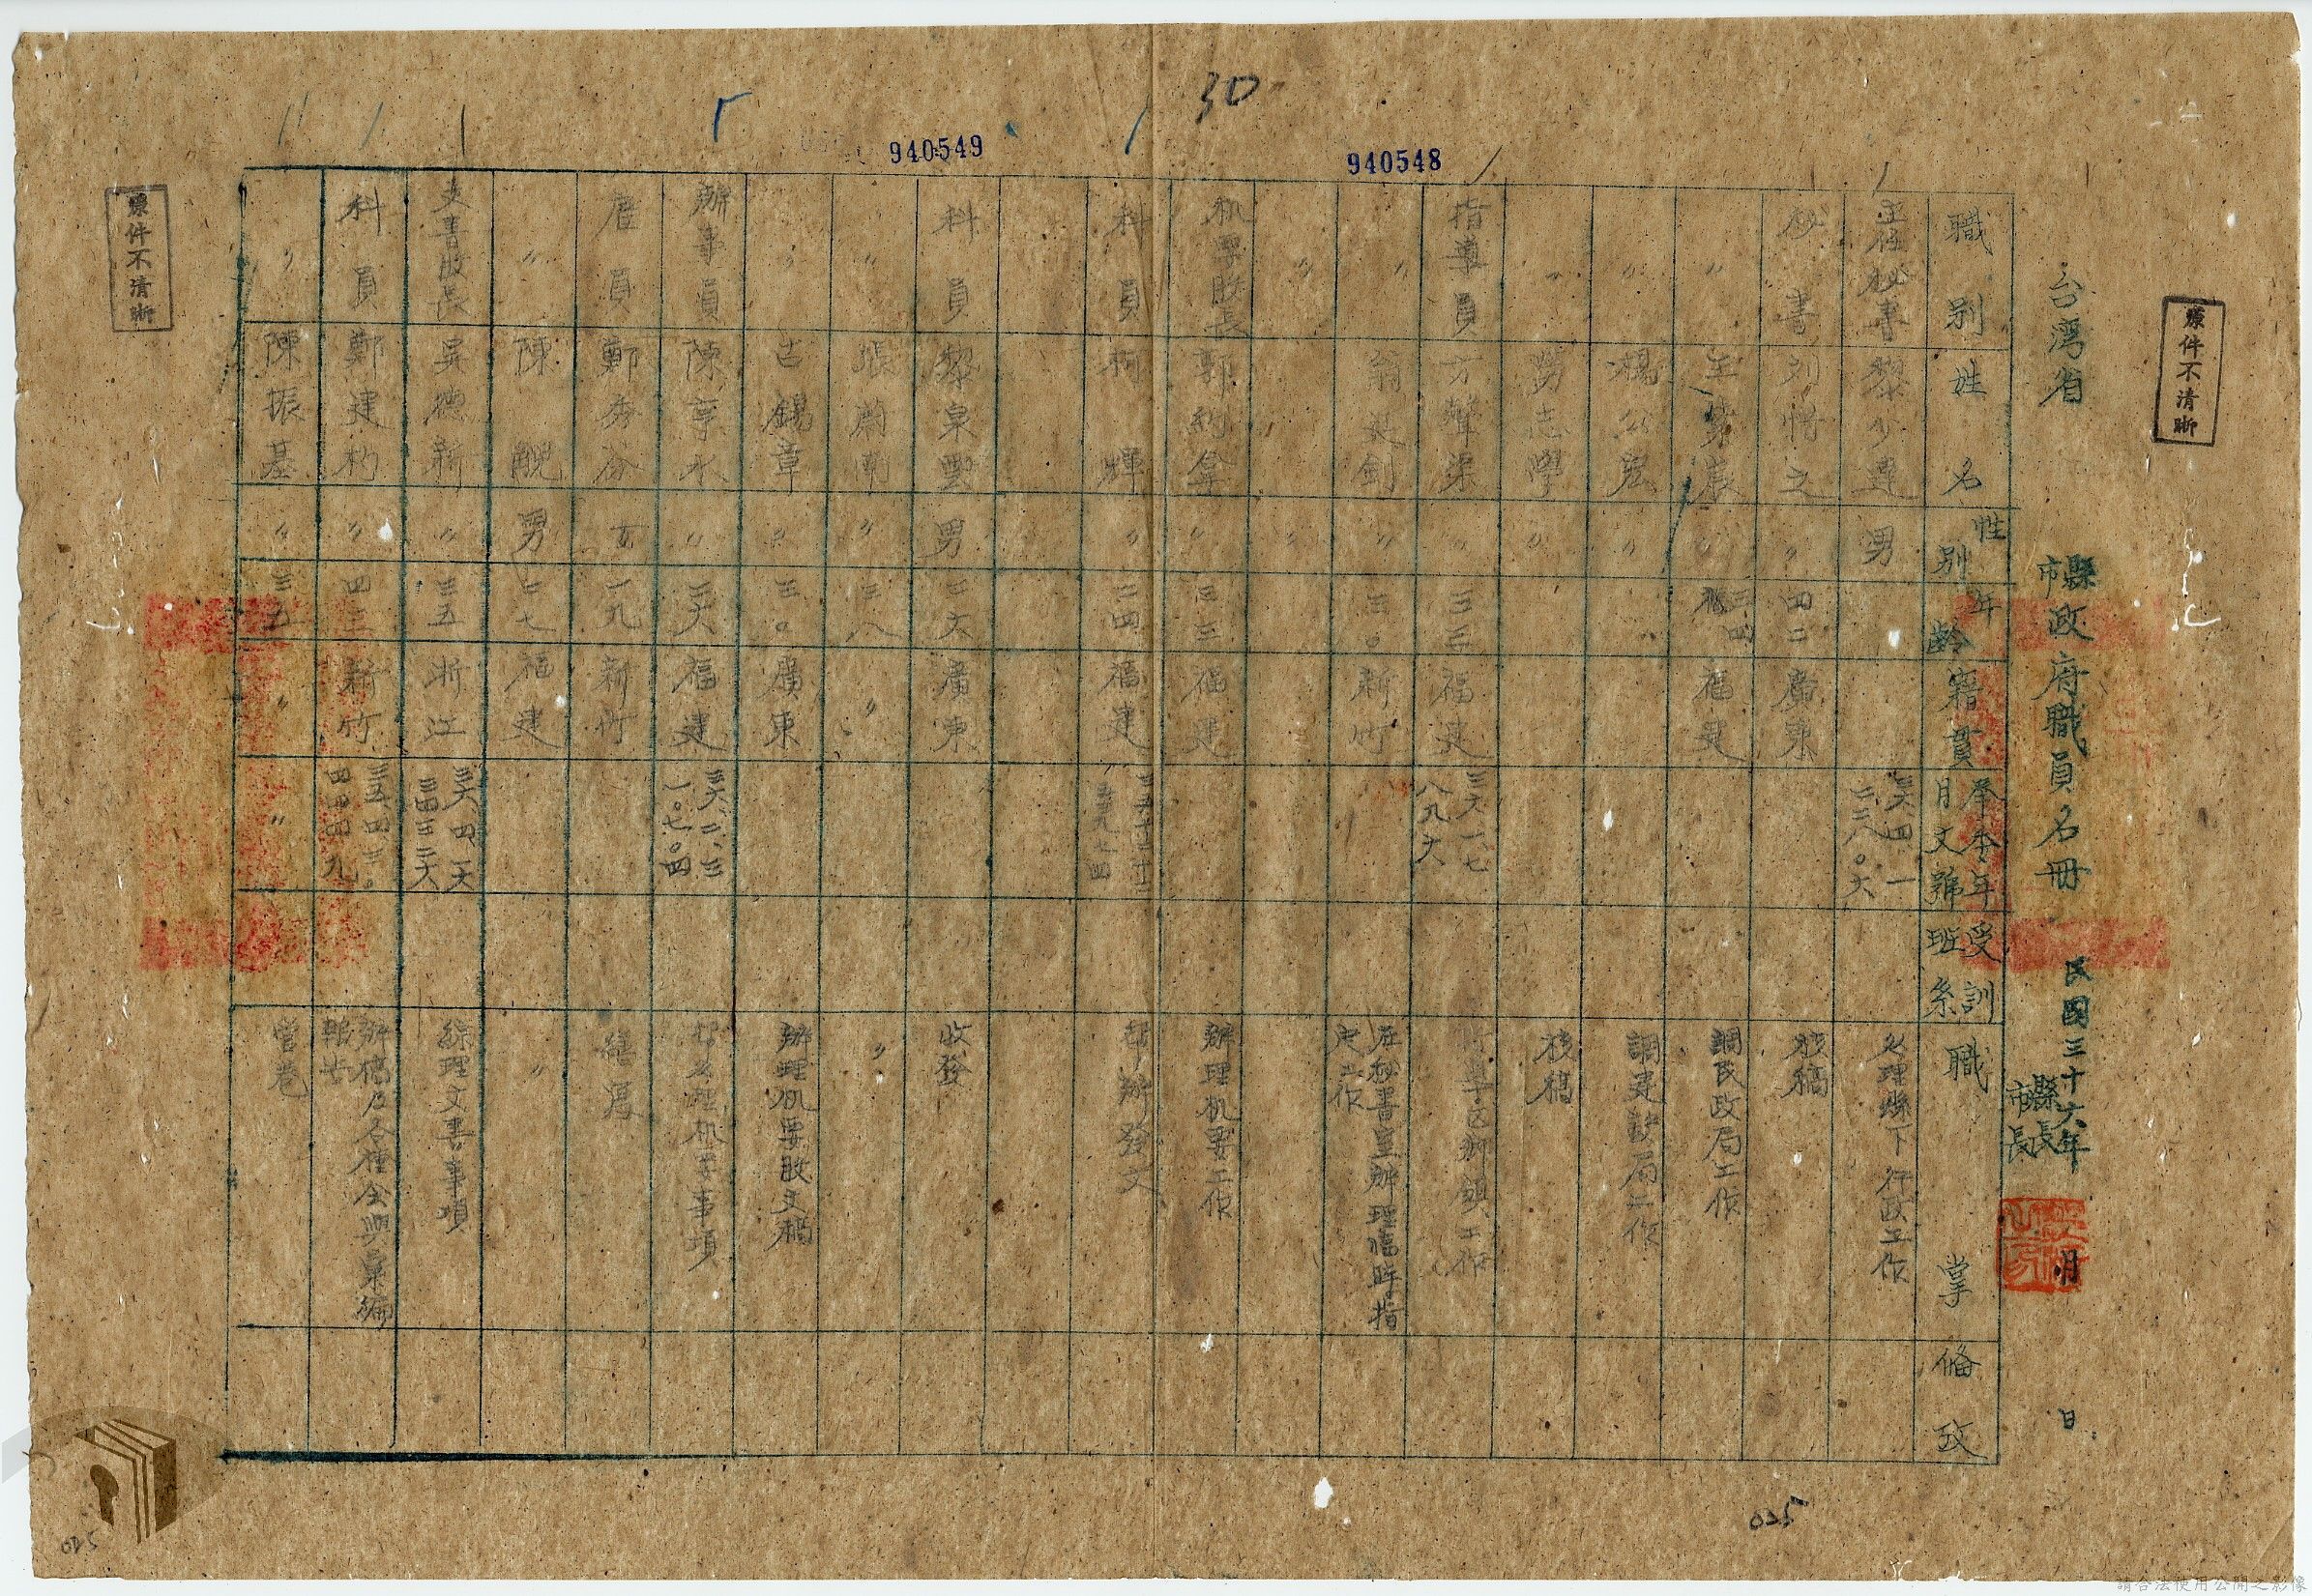 30
940548
940549
原件不清晰
台灣省
縣市政府職員名冊
民國三十六年 月 日
縣長
市長
職別 姓名 性別 年齡 籍貫 奉令年月文號 受訓班系 職掌 備攷
主任秘書 黎少達 男 三六四一
秘書 之 〃 四二 廣東 核稿
〃 〃 三四 福建 調民政局工作
〃 楊公宏 〃 〃 調建設局工作
〃 勞志學 核稿
指導員 方聲渠 〃 三三 福建 三六一七 八九六 指導区鄉鎮工作
〃 翁 劍 〃 三〇 新竹 在秘書室辦理臨時指定工作
〃 〃 〃
机要股長 郭 〃 三三 福建 辦理机要工作
科員 柯輝 〃 二四 福建 辦發文
科員 黎泉雲 男 三六 廣東 收發
〃 張蘭南 〃 三八 〃 〃
〃 古錫章 〃 三〇 廣東 辦理机要股文稿
辦事員 陳享水 〃 二六 福建 三六二、三 一〇七〇四 理机要事項
雇員 鄭秀 女 一九 新竹 繕寫
〃 陳 男 二七 福建 〃
文書股長 吳德新 〃 三五 浙江 三六四、六 三四三二六 綜理文書事項
科員 鄭建杓 〃 四三 新竹 三五四三〇 四四四九 辦稿及各種會與彙編報告
〃 陳振基 〃 三五 〃 〃 管卷
原件不清晰
025
025
請合法使用公開之影像